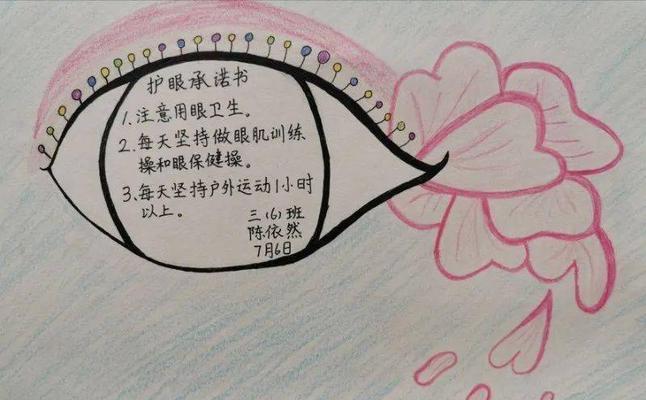 护眼承诺书
1.注意用眼卫生。
2.每天坚持做眼肌训练
操和眼保健操。
3.每天坚持户外运动1小时
以上。
三(6)班
陈依然
7月6日